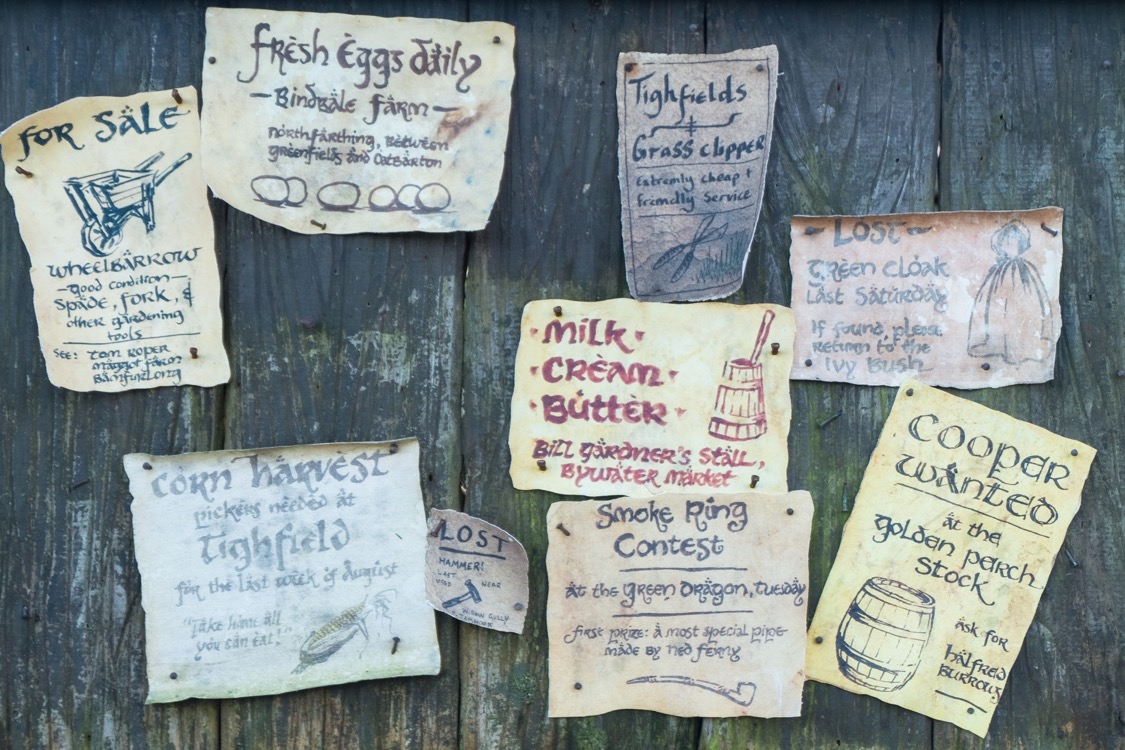 for Sale
Wheelbarrow
-good condition-
Spade, fork, &
other gardening
tools
See: Tom Roper
Maggot farm
Bamfurlong
fresh Eggs daily
- Bindbale farm -
Northfarthing, between
greenfields and Oatbarton
Tighfields
Grass clipper
Extremly cheap +
friendly service
- Lost -
Green cloak
Last Saturday
If found please
return to the
Ivy Bush
·Milk·
·Cream·
·Butter·
Bill Gardner's stall,
Bywater Market
Cooper
Wanted
at the
golden perch
stock
ask for
halfred
burrows
Corn harvest
pickers needed at
Tighfield
for the last week of August
"Take home all
you can eat!"
LOST
HAMMER!
LAST
USED NEAR
WILLOW GULLY
Smoke Ring
Contest
at the Green Dragon, Tuesday
first prize: a most special pipe
made by Ned Ferny